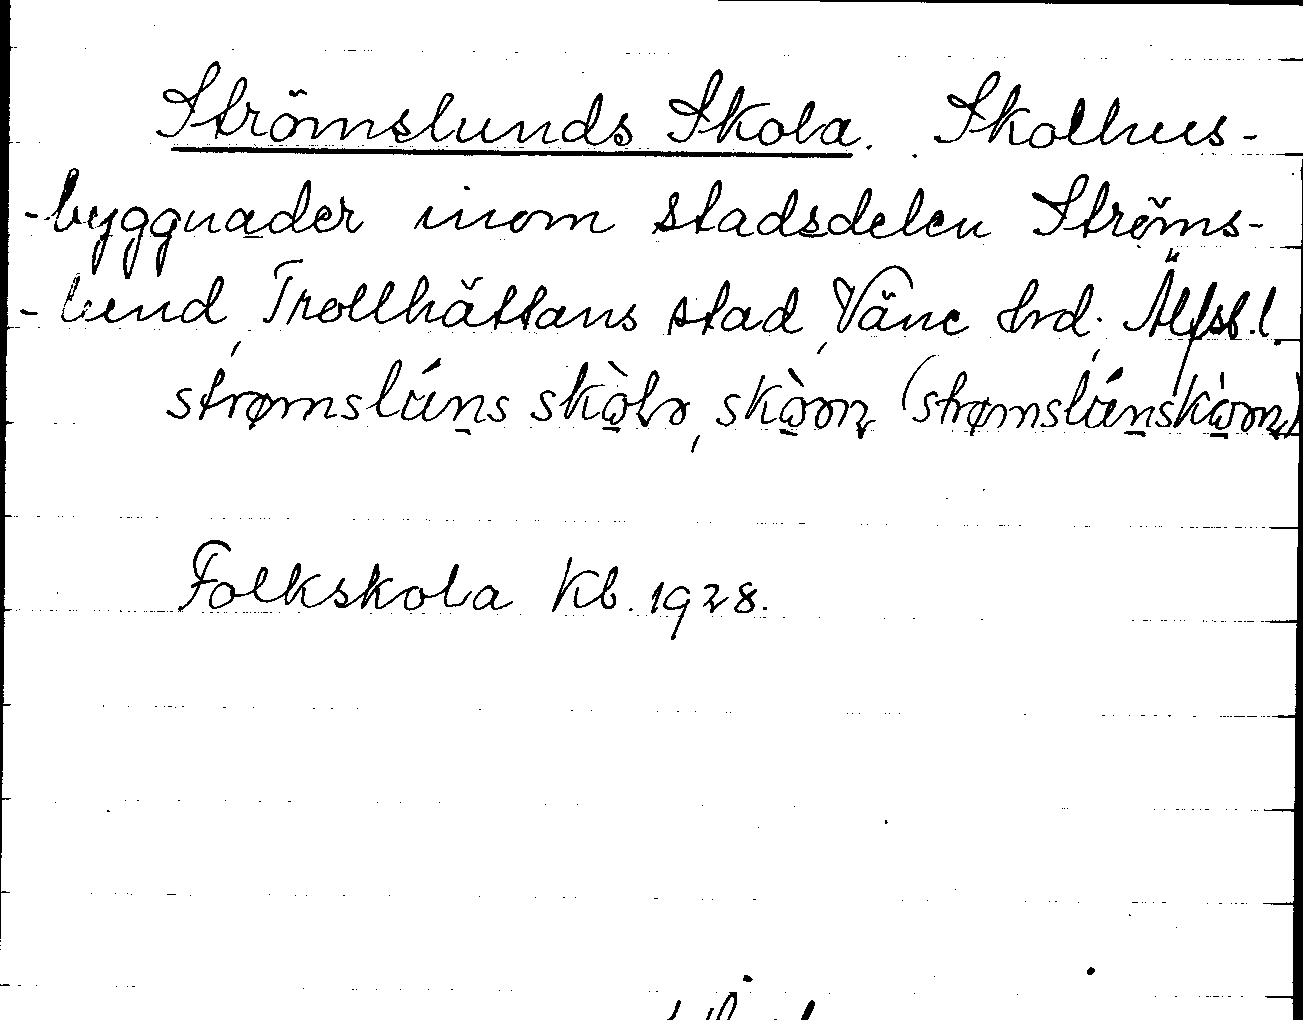 Strömslunds Skola. Skolhus-
-byggnader inom stadsdelen Ströms-
-lund, Trollhättans stad, Väne hrd. Älfsb.l.
strømslúns skòla, skòan (strømslúnskòan)
Folkskola Kb. 1928.